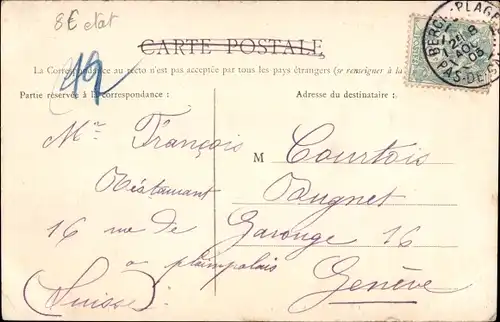 8€ etat
CARTE POSTALE
La Correspondance au recto n'est pas acceptée par tous les pays étrangers (se renseigner à la
42
Partie réservée à la correspondance :
Adresse du destinataire :
BERCK-PLAGE
PAS-DE-
05
Mr François
M Courtois
Réstaurant
Bugnet
16 rue de Carouge 16
a plainpalais
Genève
(Suisse)